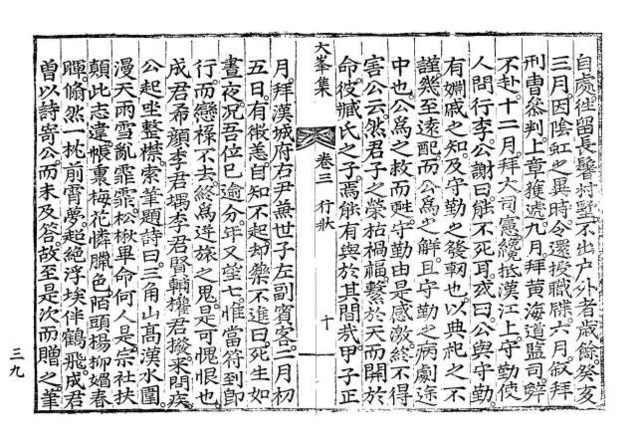 自處往留長鬐村墅不出戶外者歲餘癸亥
三月因陰虹之異時令還授職牒六月叙拜
刑曹參判上章獲遞九月拜黃海道監司辭
不赴十二月拜大司憲纔抵漢江上守勤使
人問行李公謝曰能不死耳或曰公與守勤
有嫺戚之知及守勤之發軔也以典祀之不
謹幾至遠配而公爲之解且守勤之病劇途
中也公爲之救而甦守勤由是感激終不得
害公云然君子之榮枯禍福繫於天而關於
命彼臧氏之子焉能有與於其間哉甲子正
大峯集
卷三 行狀
十
月拜漢城府右尹兼世子左副賓客二月初
五日有微恙自知不起却藥不進曰死生如
晝夜况吾位已逾分年又望七惟當符到卽
行而戀祿不去終爲逆旅之鬼是可愧恨也
成君希顔李君堣李君賢輔權君撥來問疾
公起坐整襟索筆題詩曰三角山高漢水圍
漫天雨雪亂霏霏松楸畢命何人是宗社扶
顚此志違帳裏梅花憐臘色陌頭楊柳媚春
暉翛然一枕前宵夢起絕浮埃伴鶴飛成君
曾以詩寄公而未及答故至是次而贈之筆
三九